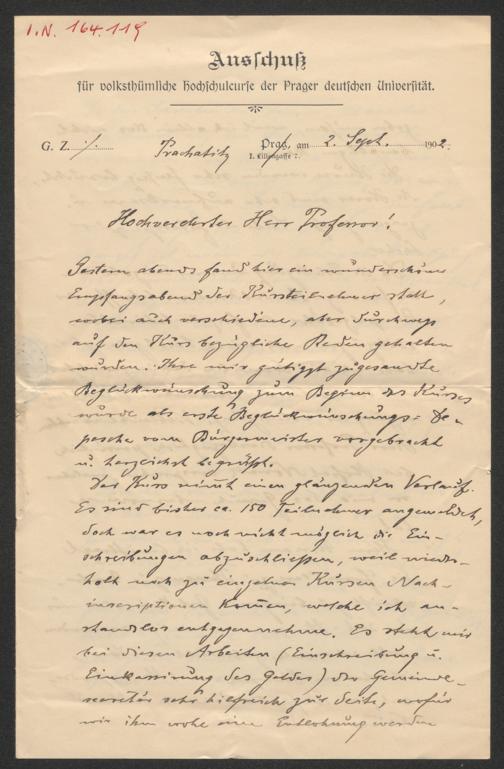 I.N. 164.119
Ausschuß
für volksthümliche Hochschulcurse der Prager deutschen Universität.
G. Z. ./.
Prachatitz
Prag, am 2. Sept. 1902.
I. Liliengasse 7.
Hochverehrter Herr Professor!
Gestern abends fand hier ein wunderschöner
Empfangsabend der Kursteilnehmer statt,
wobei auch verschiedene, aber durchwegs
auf den Kurs bezügliche Reden gehalten
wurden. Ihre mir gütigst zugesandte
Beglückwünschung zum Beginn des Kurses
wurde als erste Beglückwünschungs-De-
pesche vom Bürgermeister vorgebracht
u. herzlichst begrüßt.
Der Kurs nimmt einen glänzenden Verlauf.
Es sind bisher ca. 150 Teilnehmer angemeldet,
doch war es noch nicht möglich die Ein-
schreibungen abzuschließen, weil wieder-
holt noch zu einzelnen Kursen Nach-
inscriptionen kommen, welche ich an-
standslos entgegennehme. Es steht mir
bei diesen Arbeiten (Einschreibung u.
Einkassirung des Geldes) der Gemeinde-
secretär sehr hilfreich zur Seite, wofür
wir ihm wohl eine Entlohnung werden